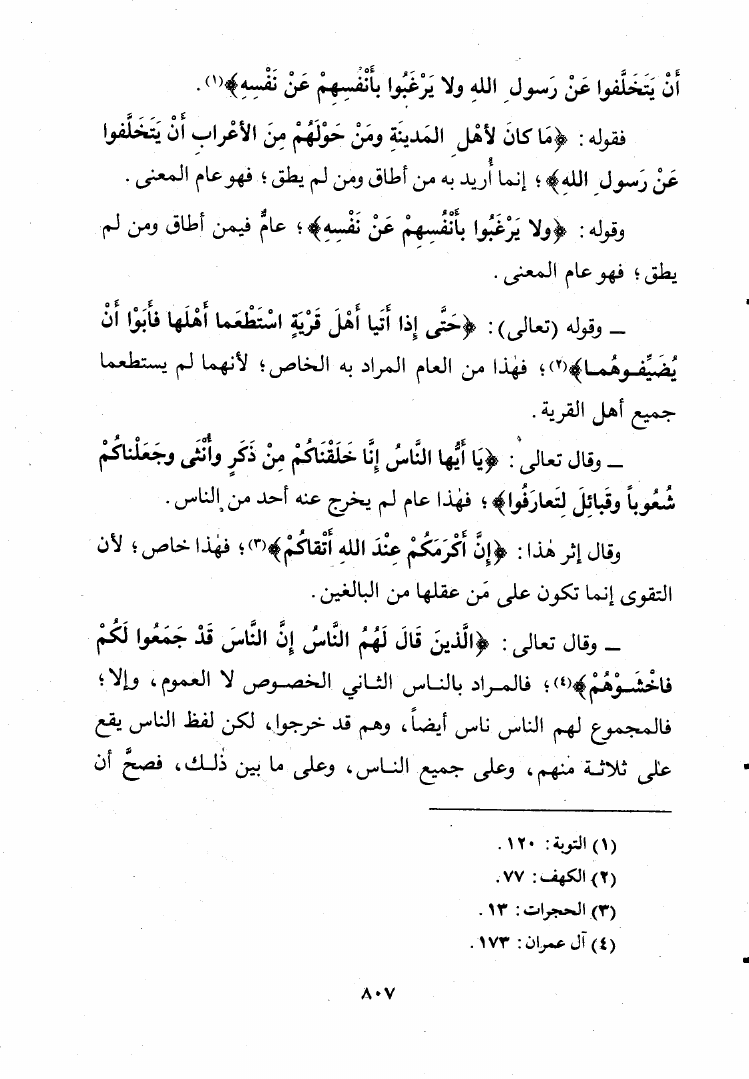 أَنْ يَتَخَلَّفوا عَنْ رَسول ِ اللهِ ولا يَرْغَبُوا بأَنْفُسِهِمْ عَنْ نَفْسِهِ﴾(١).
فقوله: ﴿مَا كانَ لأهْل ِ المَدينَةِ ومَنْ حَوْلَهُمْ مِنَ الأعْرابِ أَنْ يَتَخَلَّفوا
عَنْ رَسول ِ اللهِ﴾؛ إنما أُريد به من أطاق ومن لم يطق؛ فهو عام المعنى.
وقوله: ﴿ولا يَرْغَبُوا بأَنْفُسِهِمْ عَنْ نَفْسِهِ﴾؛ عامٌّ فيمن أطاق ومن لم
يطق؛ فهو عام المعنى.
ـ وقوله (تعالى): ﴿حَتَّى إذا أَتَيا أَهْلَ قَرْيَةٍ اسْتَطْعَما أَهْلَها فأَبَوْا أَنْ
يُضَيِّفـوهُمـا﴾(٢)؛ فهٰذا من العام المراد به الخاص؛ لأنهما لم يستطعما
جميع أهل القرية.
ـ وقال تعالى: ﴿يَا أَيُّها النَّاسُ إِنَّا خَلَقْنَاكُمْ مِنْ ذَكَرٍ وأُنْثَى وجَعَلْناكُمْ
شُعُوباً وقَبائِلَ لِتَعارَفُوا﴾؛ فهٰذا عام لم يخرج عنه أحد من الناس.
وقال إثر هٰذا: ﴿إِنَّ أَكْرَمَكُمْ عِنْدَ اللهِ أَتْقاكُمْ﴾(٣)؛ فهٰذا خاص؛ لأن
التقوى إنما تكون على مَن عقلها من البالغين.
ـ وقال تعالى: ﴿الَّذينَ قَالَ لَهُمُ النَّاسُ إِنَّ النَّاسَ قَدْ جَمَعُوا لَكُمْ
فاخْشَـوْهُمْ﴾(٤)؛ فالمـراد بالنـاس الثـاني الخصـوص لا العموم، وإلا؛
فالمجموع لهم الناس ناس أيضاً، وهم قد خرجوا، لكن لفظ الناس يقع
على ثلاثـة منهم، وعلى جميع النـاس، وعلى ما بين ذٰلـك، فصحَّ أن
(١) التوبة: ١٢٠.
(٢) الكهف: ٧٧.
(٣) الحجرات: ١٣.
(٤) آل عمران: ١٧٣.
٨٠٧